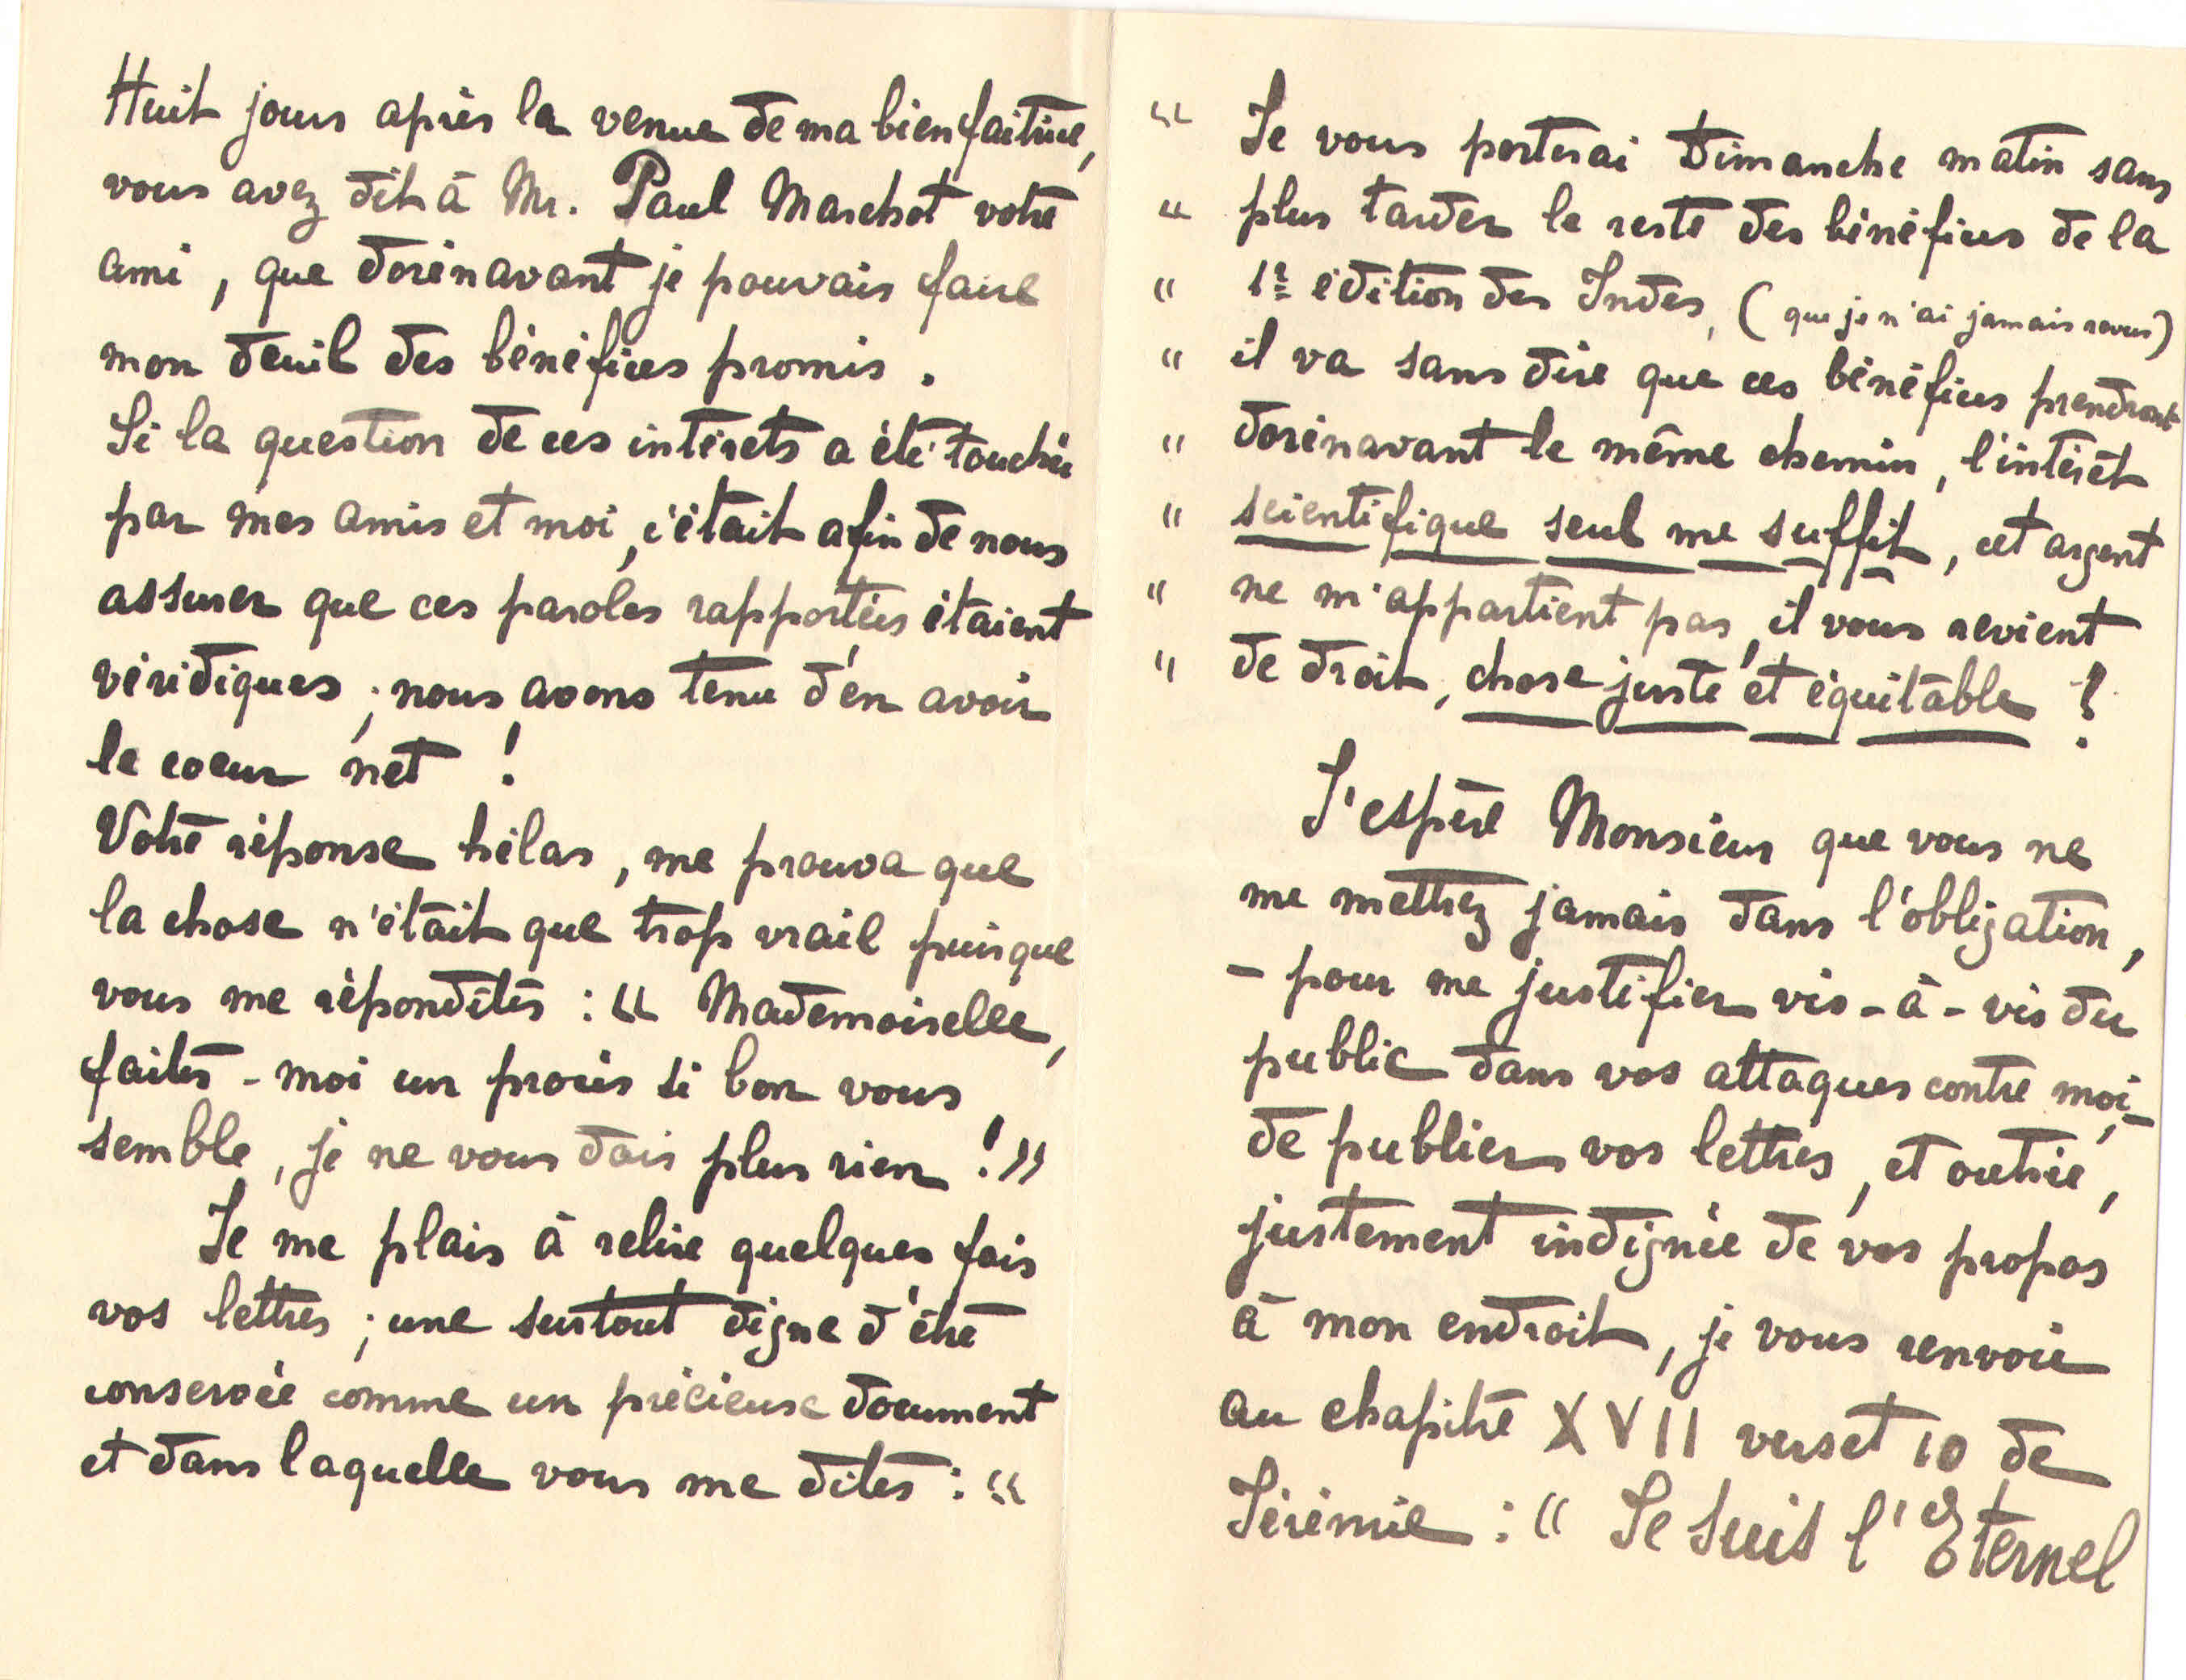 Huit jours après la venue de ma bienfaitrice,
vous avez dit à Mr. Paul Marchot votre
ami, que dorénavant je pouvais faire
mon deuil des bénéfices promis.
Si la question de ces intérets a été touchée
par mes amis et moi, c'était afin de nous
assurer que ces paroles rapportées étaient
véridiques ; nous avons tenu d'en avoir
le coeur net !
Votre réponse hélas, me prouva que
la chose n'était que trop vraie puisque
vous me répondites : « Mademoiselle,
faites-moi un procès si bon vous
semble, je ne vous dois plus rien ! »
Je me plais à relire quelques fois
vos lettres ; une surtout digne d'être
conservée comme un précieuse document
et dans laquelle vous me dites : «
« Je vous porterai Dimanche matin sans
« plus tarder le reste des bénéfices de la
« 1re édition des Indes, (que je n'ai jamais reçus)
« il va sans dire que ces bénéfices prendront
« dorénavant le même chemin, l'intérêt
« scientifique seul me suffit, cet argent
« ne m'appartient pas, il vous revient
« de droit, chose juste et équitable !
J'espère Monsieur que vous ne
me mettrez jamais dans l'obligation,
- pour me justifier vis-à-vis du
public dans vos attaques contre moi,-
de publier vos lettres, et outrée,
justement indignée de vos propos
à mon endroit, je vous renvoie
au chapitre XVII verset 10 de
Jérémie : « Je suis l'Eternel